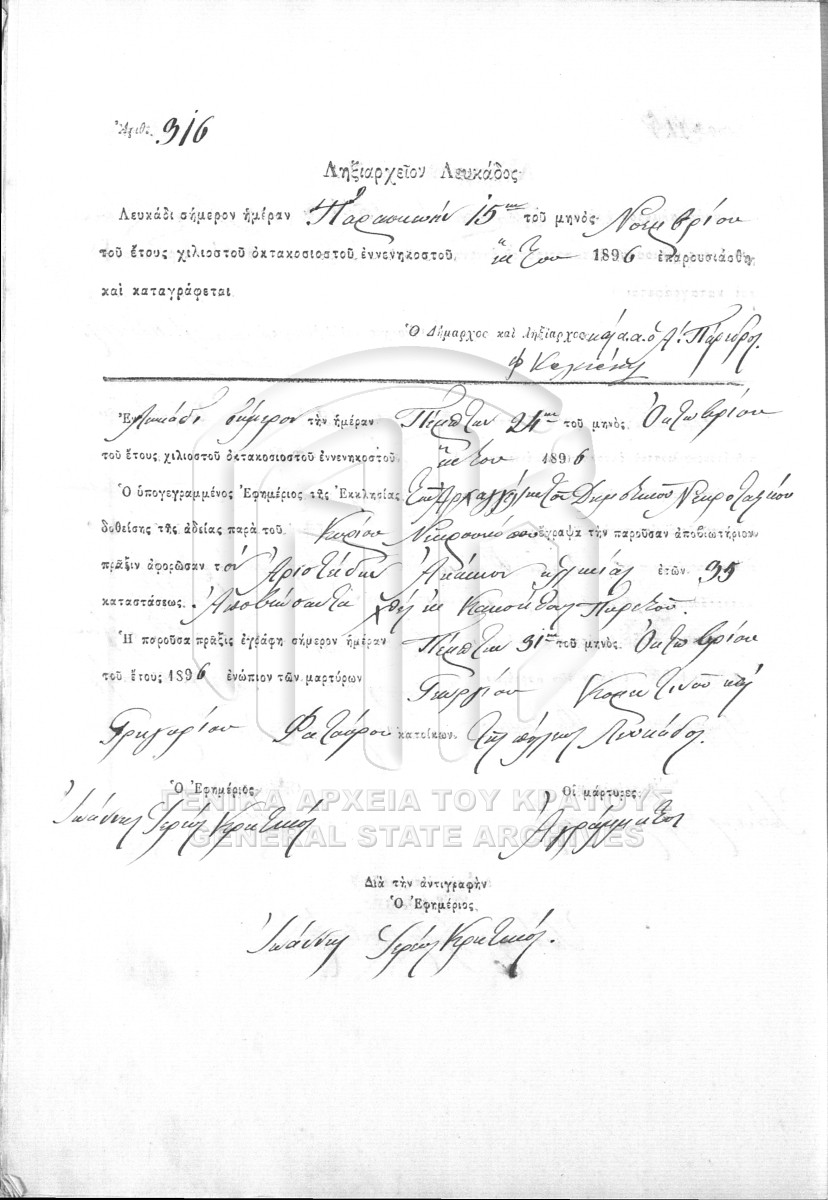 Ἀριθ. 316
Ληξιαρχεῖον Λευκάδος
Λευκάδι σήμερον ἡμέραν Παρασκευὴν 15ην τοῦ μηνὸς Νοεμβρίου
τοῦ ἔτους χιλιοστοῦ ὀκτακοσιοστοῦ ἐννενηκοστοῦ ἕκτου 1896 ἐπαρουσιάσθη
καὶ καταγράφεται
Ὁ Δήμαρχος καὶ Ληξίαρχος κ.α.α. ὁ Α! Πάρεδρος
Ἐν Λευκάδι σήμερον τὴν ἡμέραν Πέμπτην 24ην τοῦ μηνὸς Ὀκτωβρίου
τοῦ ἔτους χιλιοστοῦ ὀκτακοσιοστοῦ ἐννενηκοστοῦ ἕκτου 1896
Ὁ ὑπογεγραμμένος Ἐφημέριος τῆς Ἐκκλησίας τοῦ Δημοτικοῦ Νεκροταφείου
δοθείσης τῆς ἀδείας παρὰ τοῦ Κυρίου Νεκροσκόπου ἔγραψα τὴν παροῦσαν ἀποβιωτήριον
πρᾶξιν ἀφορῶσαν τὸν Ἀριστείδην ἡλικίας ἐτῶν 35
καταστάσεως. Ἀποβιώσαντα χθὲς ἐκ Κακοήθους Πυρετοῦ.
Ἡ παροῦσα πρᾶξις ἐγράφη σήμερον ἡμέραν Πέμπτην 31ην τοῦ μηνὸς Ὀκτωβρίου
τοῦ ἔτους 1896 ἐνώπιον τῶν μαρτύρων Γεωργίου καὶ
Γρηγορίου κατοίκων τῆς πόλεως Λευκάδος.
Ὁ Ἐφημέριος Οἱ μάρτυρες
Ἰωάννης Ἱερεὺς Κρητικός Ἀγράμματοι
Διὰ τὴν ἀντιγραφὴν
Ὁ Ἐφημέριος
Ἰωάννης Ἱερεὺς Κρητικός.
ΓΕΝΙΚΑ ΑΡΧΕΙΑ ΤΟΥ ΚΡΑΤΟΥΣ
GENERAL STATE ARCHIVES